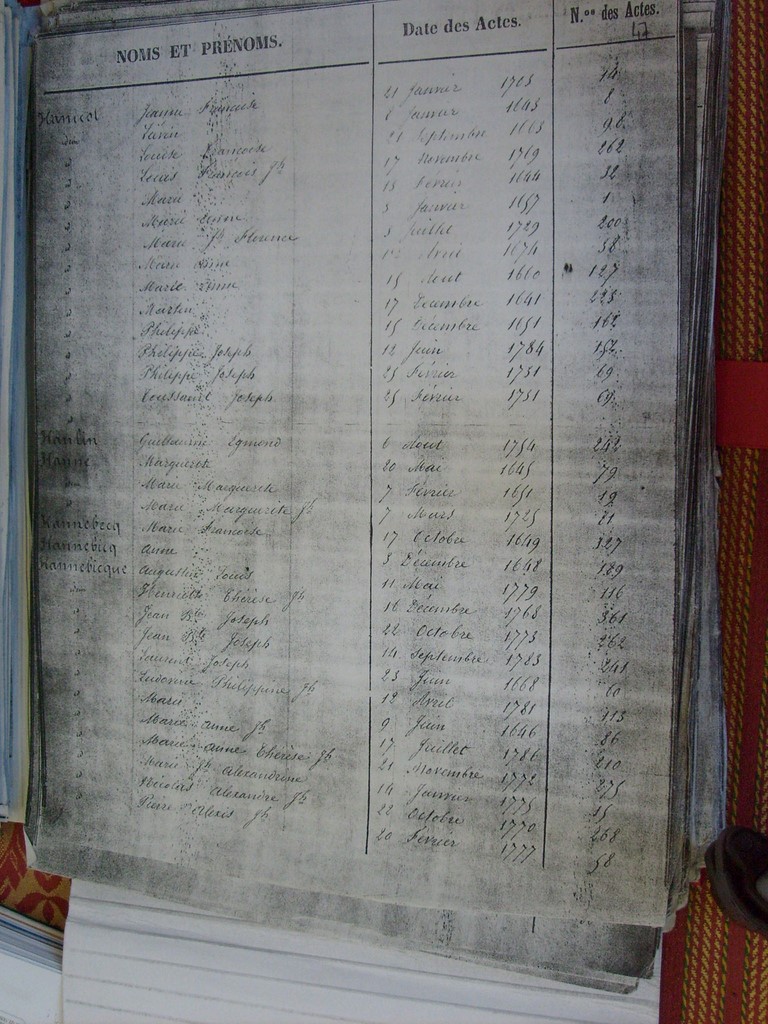 NOMS ET PRÉNOMS. Date des Actes. N.os des Actes.
47
Hanicot Jeanne Françoise 21 Janvier 1703 14
8 Janvier 1643 8
Louise Françoise 21 Septembre 1663 98
Louis François Jh 17 Novembre 1769 262
Marie 13 Février 1644 32
Marie Anne 3 Janvier 1657 1
Marie Jh Florence 3 Juillet 1729 200
Marie Anne Avril 1674 58
Marie Anne 15 Aout 1660 127
Martin 17 Décembre 1641 225
Philippe 15 Décembre 1651 162
Philippe Joseph 12 Juin 1784 152
Philippe Joseph 25 Février 1751 69
Toussaint Joseph 25 Février 1751 69
Hanlin Guillaume Egmond 6 Aout 1754 242
Hanne Marguerite 20 Mai 1645 79
Marie Marguerite 7 Février 1651 19
Marie Marguerite Jh 7 Mars 1725 71
Hannebecq Marie Françoise 17 Octobre 1649 327
Hannebicq Anne 3 Décembre 1648 189
Hannebicque Augustin Louis 11 Mai 1779 116
Henriette Thérèse Jh 16 Décembre 1768 361
Jean Bte Joseph 22 Octobre 1773 262
Jean Bte Joseph 14 Septembre 1783 241
Laurent Joseph 23 Juin 1668 60
Ludovine Philippine Jh 12 Avril 1781 113
Marie 9 Juin 1646 86
Marie Anne Jh 17 Juillet 1786 210
Marie Anne Thérèse Jh 21 Novembre 1772 275
Marie Jh Alexandrine 14 Janvier 1775 15
Nicolas Alexandre Jh 22 Octobre 1770 268
Pierre Alexis Jh 20 Février 1777 58